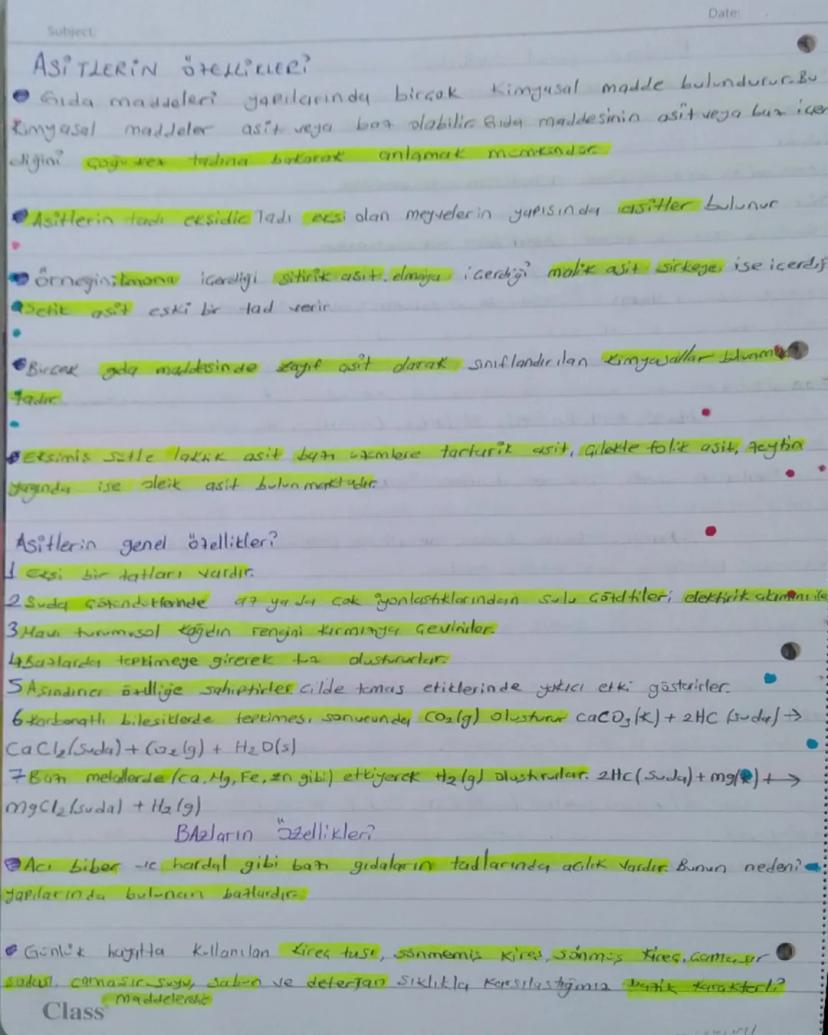 Date:
Subject:
ASİTLERİN ÖZELLİKLERİ?
Gıda maddeleri yapılarında birçok kimyasal madde bulundurur. Bu
kimyasal maddeler asit veya baz olabilir Gıda maddesinin asit veya baz içer
diğini çoğu kez tadına bakarak anlamak mümkündür.
Asitlerin tadı ekşidir Tadı ekşi olan meyvelerin yapısında asitler bulunur
Örneğin; limona içerdiği sitirik asit, elmaya içerdiği malik asit sirkeye ise içerdiğ
asetik asit eski bir tad verir
Birçok gıda maddesinde zayıf asit olarak sınıflandırılan kimyasallar bulunmak
tadır.
Ekşimiş sütte laktik asit bazı üzümlere tarturik asit, çilekte folik asit, zeytin
yağında ise oleik asit bulunmaktadır.
Asitlerin genel özellikleri?
1 Ekşi bir tatları vardır.
2 Suda çözündüklerinde az ya da çok iyonlaştıklarından sulu çözeltileri elektirik akımını ile
3 Mavi turnusol kağıdın rengini kırmızıya çevirirler.
4 Bazlarda tepkimeye girerek tuz oluştururlar.
5 Aşındırıcı özelliğe sahiptirler cilde temas etiklerinde yakıcı etki gösterirler.
6 Karbonatlı bileşiklerde tepkimesi sonucunda CO₂(g) oluşturur CaCO₃(k) + 2HC (suda) →
CaCl₂(suda) + CO₂(g) + H₂O(s)
7 Bazı metallerde (Ca, Mg, Fe, Zn gibi) etkiyerek H₂(g) oluştururlar. 2Hc(suda) + mg(k) + →
mgCl₂(suda) + H₂(g)
BAzların Özellikleri?
Acı biber ve hardal gibi bazı gıdaların tadlarında acılık vardır. Bunun nedeni
yapılarında bulunan bazlardır.
Günlük hayatta kullanılan kireç taşı, sönmemiş kireç, sönmüş kireç, çamaşır
sodası, çamaşır suyu, sabun ve deterjan sıklıkla karşılaştığımız bazik karakterli?
maddelerdir
Class